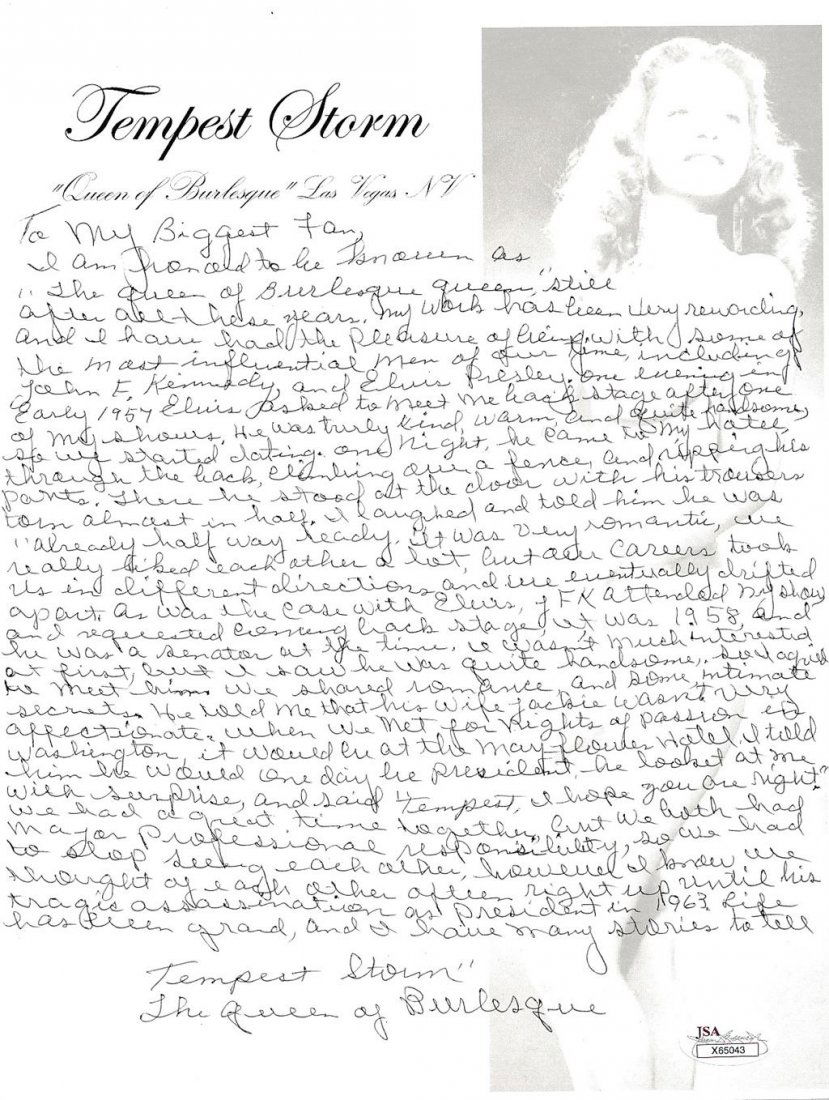 Tempest Storm
"Queen of Burlesque" Las Vegas NV
To My Biggest Fan,
I am honored to be known as
"The queen of Burlesque queen," still
after all these years. My work has been very rewarding,
and I have had the pleasure of being with some of
the most influential men of our time, including
John F. Kennedy, and Elvis Presley. One evening in
Early 1957 Elvis asked to meet me back stage after one
of my shows, He was truly kind, warm, and quite handsome,
so we started dating. One night, he came to my hotel
through the back, climbing over a fence, and ripping his
pants. There he stood at the door with his trousers
torn almost in half. I laughed and told him he was
"already half way ready. It was very romantic, we
really liked each other a lot, but our careers took
us in different directions and we eventually drifted
apart. As was the case with Elvis, JFK attended my show
and requested coming back stage, it was 1958, and
he was a senator at the time. I wasn't much interested
at first, but I saw he was quite handsome, so I agreed
to meet him. We shared romance, and some intimate
secrets. He told me that his wife Jackie wasn't very
affectionate. When we met for nights of passion in
Washington, it would be at the Mayflower Hotel. I told
him he would one day be President, he looked at me
with surprise, and said "Tempest, I hope you are right."
We had a great time together, but we both had
major professional responsibility, so we had
to stop seeing each other, however I know we
thought of each other often right up until his
tragic assassination as President in 1963. Life
has been grand, and I have many stories to tell
Tempest Storm"
The Queen of Burlesque
JSA
X65043